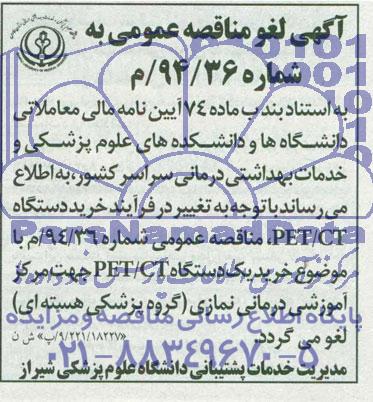 آگهی لغو مناقصه عمومی به
شماره ۹۴/۳۶/م
به استناد بند ب ماده ۷۴ آیین نامه مالی معاملاتی
دانشگاه ها و دانشکده های علوم پزشکی و
خدمات بهداشتی درمانی سراسر کشور، به اطلاع
می رساند با توجه به تغییر در فرآیند خرید دستگاه
PET/CT، مناقصه عمومی شماره ۹۴/۳۶/م با
موضوع خرید یک دستگاه PET/CT جهت مرکز
آموزشی درمانی نمازی (گروه پزشکی هسته ای)
لغو می گردد.
«۹/۲۲۱/۱۸۲۲۷/پ» ش ن
مدیریت خدمات پشتیبانی دانشگاه علوم پزشکی شیراز
ParsNamadData
پایگاه اطلاع رسانی مناقصه و مزایده
۰۲۱-۸۸۳۴۹۶۷۰-۵